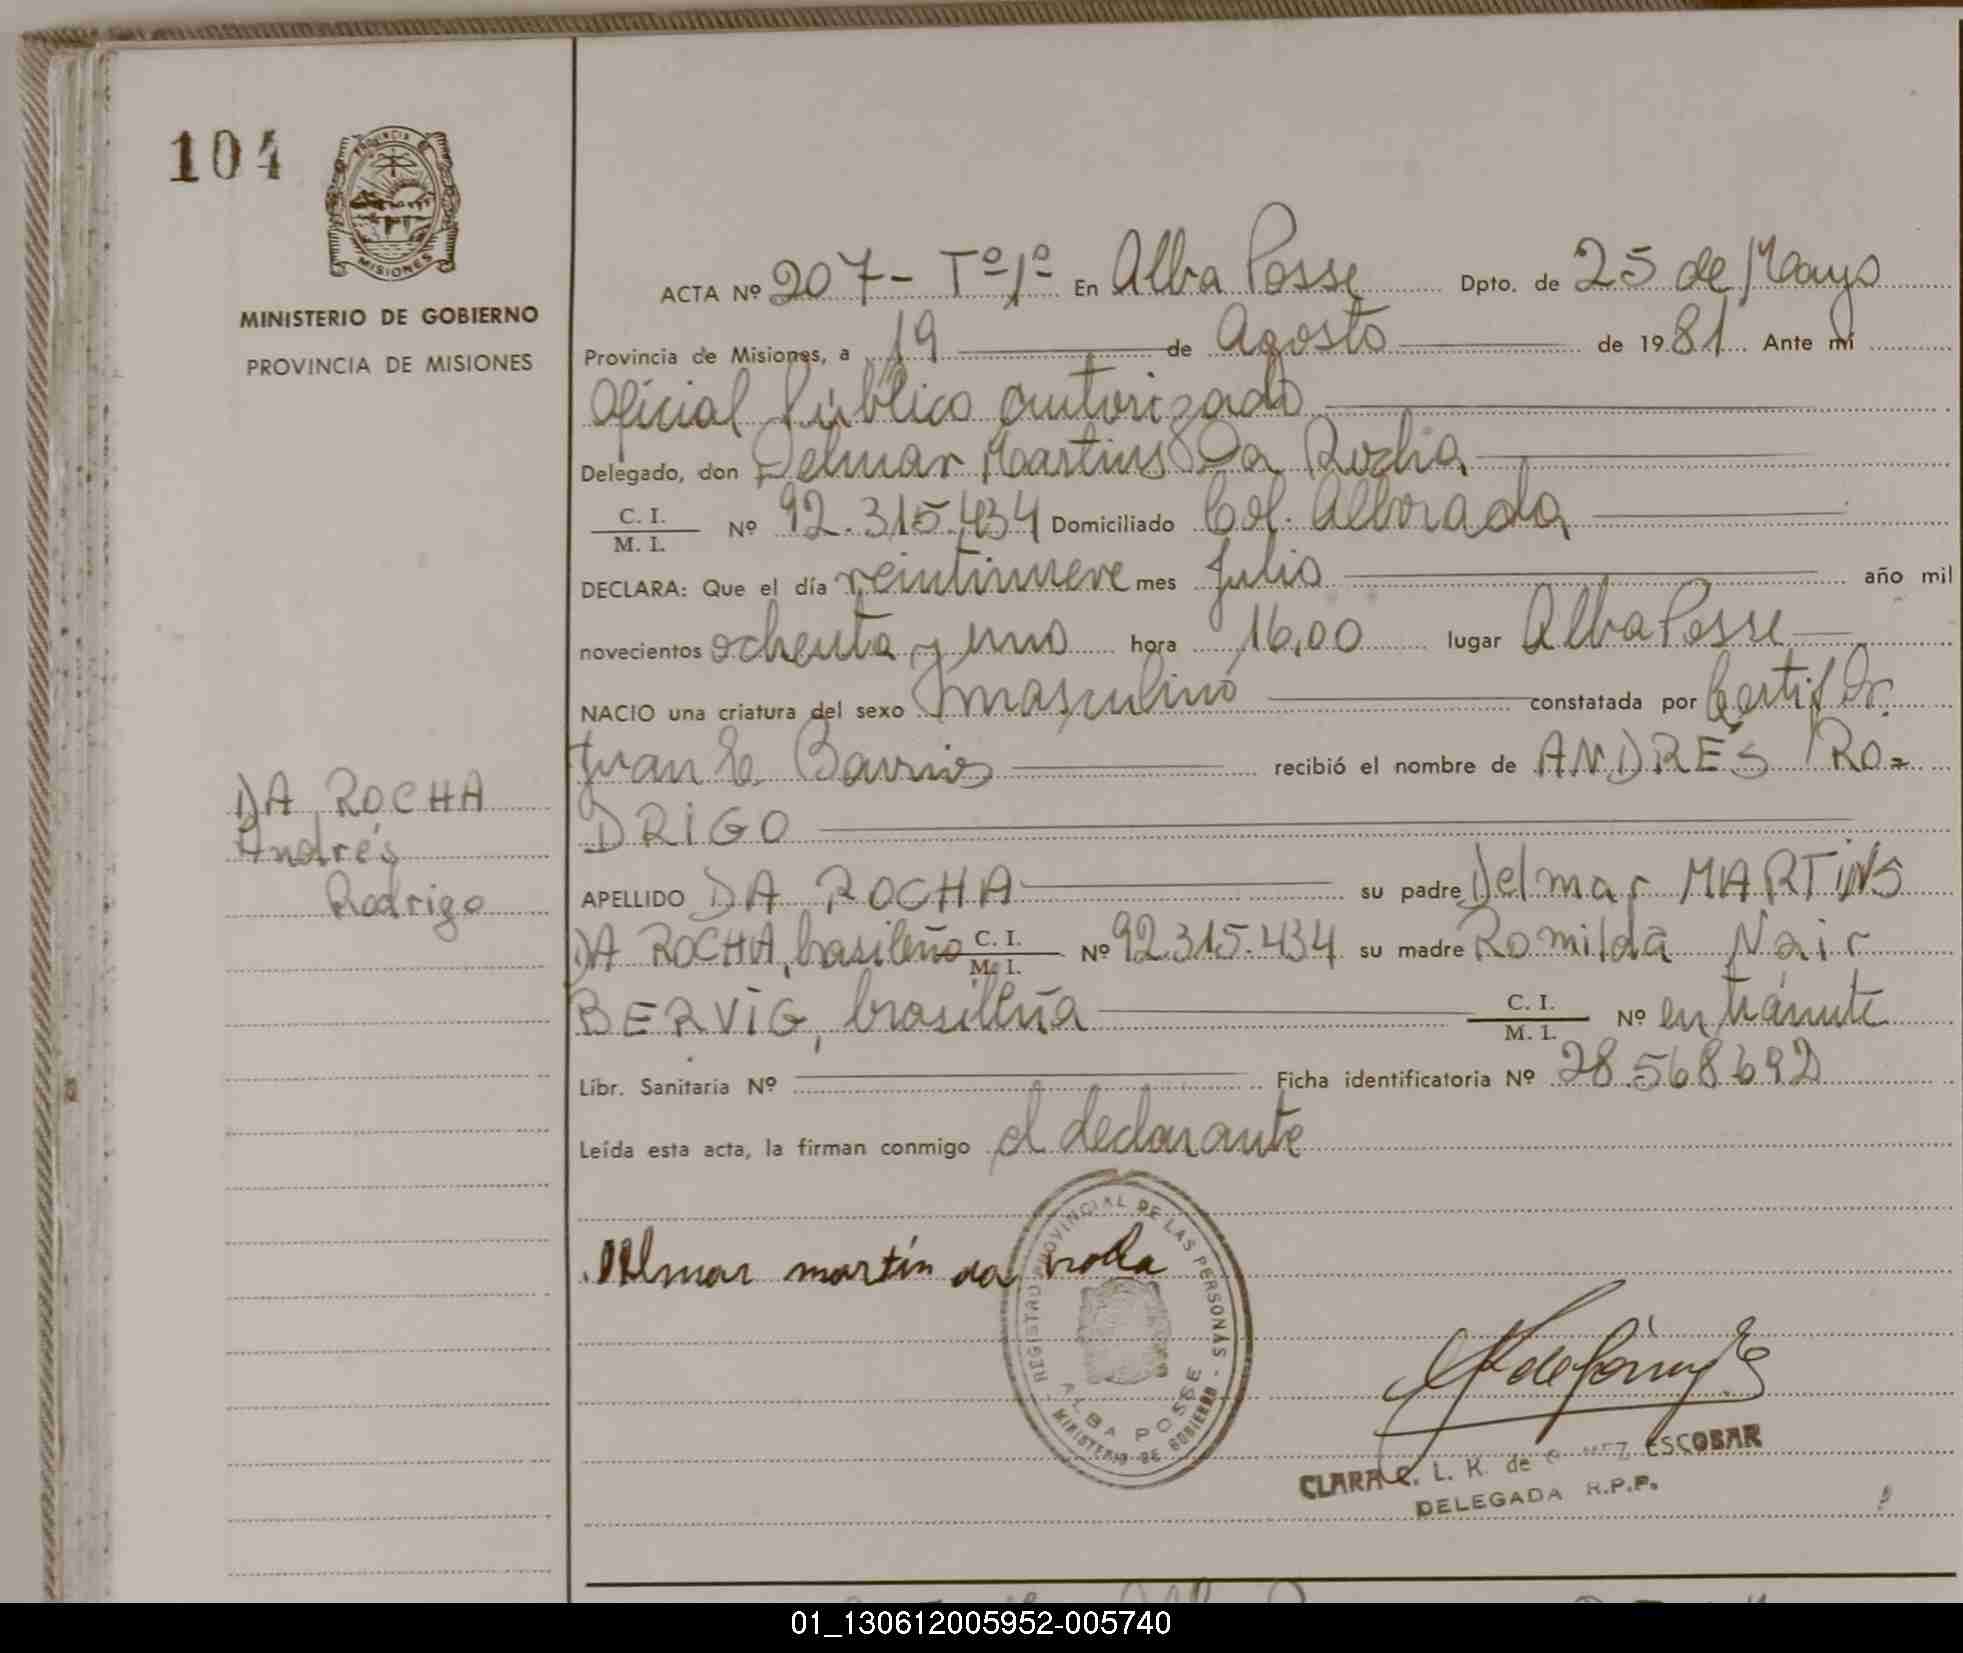 104
PROVINCIA DE
MISIONES
MINISTERIO DE GOBIERNO
PROVINCIA DE MISIONES
DA ROCHA
Andrés
Rodrigo
ACTA Nº 207- Tº 1º En Alba Posse Dpto. de 25 de Mayo
Provincia de Misiones, a 19 de Agosto de 1981 Ante mí
Oficial Público autorizado
Delegado, don Delmar Martins Da Rocha
C. I.
M. I. Nº 92.315.434 Domiciliado Col. Alborada
DECLARA: Que el día veintinueve mes Julio año mil
novecientos ochenta y uno hora 16,00 lugar Alba Posse
NACIO una criatura del sexo masculino constatada por Certif Dr.
Juan E. Barrios recibió el nombre de ANDRÉS RO=
DRIGO
APELLIDO DA ROCHA su padre Delmar MARTINS
DA ROCHA, brasileño C. I. M. I. Nº 92.315.434 su madre Romilda Nair
BERVIG, brasileña C. I. M. I. Nº en trámite
Libr. Sanitaria Nº Ficha identificatoria Nº 28.568.692
Leída esta acta, la firman conmigo el declarante
Delmar martín da rocha
REGISTRO PROVINCIAL DE LAS PERSONAS
ALBA POSSE
MINISTERIO DE GOBIERNO
CLARA C. L. K. de ESCOBAR
DELEGADA R.P.P.
01_130612005952-005740